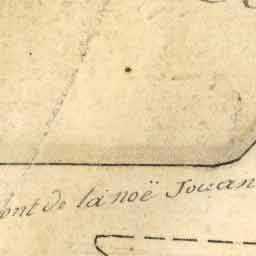 font de la noë Jouan